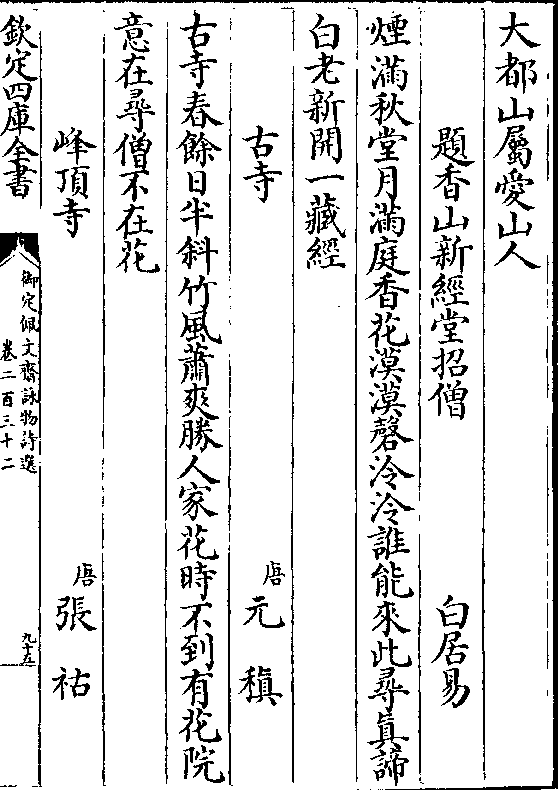 大都山屬愛山人
題香山新經堂招僧 白居易
煙滿秋堂月滿庭香花漠漠磬泠泠誰能來此尋眞諦
白老新開一藏經
古寺 唐 元稹
古寺春餘日半斜竹風蕭爽勝人家花時不到有花院
意在尋僧不在花
峰頂寺 唐 張祜
欽定四庫全書
御定佩文齋詠物詩選
卷二百三十二
九十五